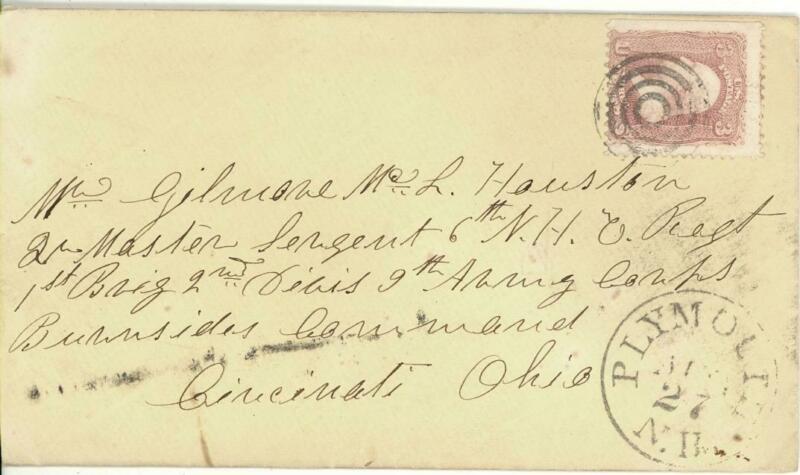 Mr. Gilmore Mc. L. Houston
Qr Master Sergent 6th N. H. V. Regt
1st Brig 2nd Divis 9th Army Corps
Burnsides Command
Cincinati Ohio
PLYMOUT
27
N.H.
3